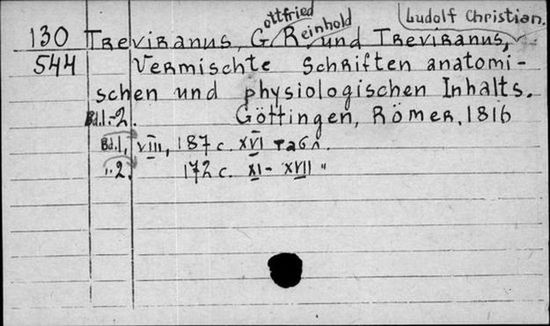 130 Treviranus, Gottfried Reinhold und Treviranus, Ludolf Christian.
544 Vermischte Schriften anatomi-
schen und physiologischen Inhalts.
Bd.1.-2. Göttingen, Römer, 1816
Bd.1, VIII, 187 с. XVI табл.
" 2. 172 с. XI-XVII "